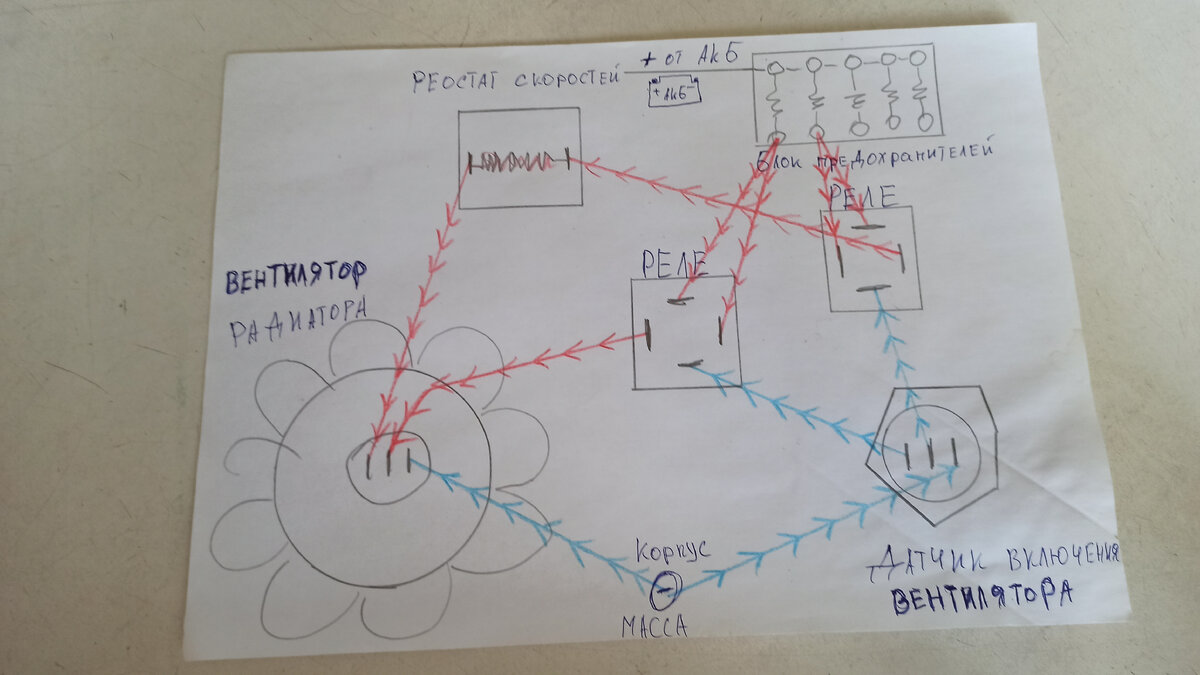 + от АКБ
РЕОСТАТ СКОРОСТЕЙ
+ АКБ -
БЛОК ПРЕДОХРАНИТЕЛЕЙ
РЕЛЕ
РЕЛЕ
ВЕНТИЛЯТОР
РАДИАТОРА
КОРПУС
-
МАССА
ДАТЧИК ВКЛЮЧЕНИЯ
ВЕНТИЛЯТОРА